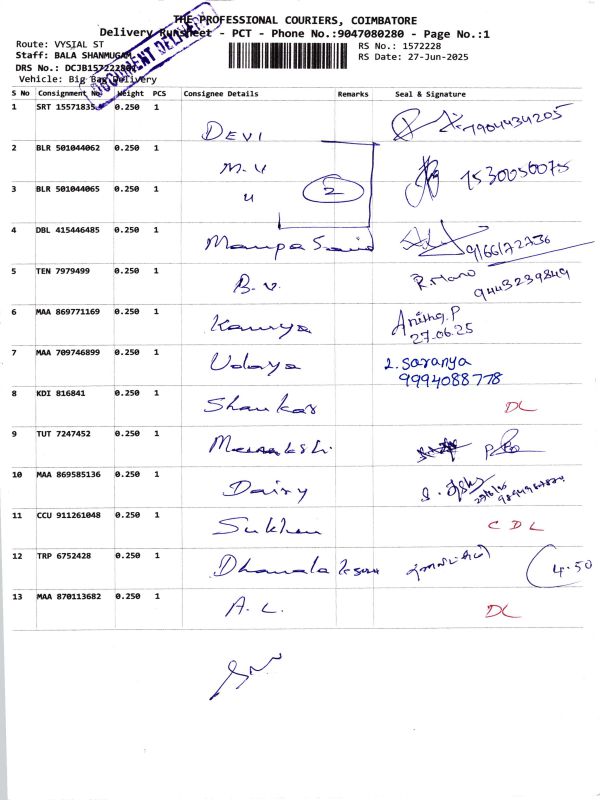 THE PROFESSIONAL COURIERS, COIMBATORE
Delivery Runsheet - PCT - Phone No.:9047080280 - Page No.:1
Route: VYSIAL ST
RS No.: 1572228
Staff: BALA SHANMUGAM
RS Date: 27-Jun-2025
DRS No.: DCJB1572228
Vehicle: Big Bag Delivery
DOCUMENT DELIVERY
S No Consignment No Weight PCS Consignee Details Remarks Seal & Signature
1 SRT 15571835 0.250 1 DEVI 7904434205
2 BLR 501044062 0.250 1 M.V 1530050075
3 BLR 501044065 0.250 1 u 2
4 DBL 415446485 0.250 1 9166172736
5 TEN 7979499 0.250 1 B.V. R.Mano
9443239849
6 MAA 869771169 0.250 1 Kavuya Anitha.P
27.06.25
7 MAA 709746899 0.250 1 Udaya L.Saranya
9994088778
8 KDI 816841 0.250 1 Shankar DL
9 TUT 7247452 0.250 1 Meenakshi
10 MAA 869585136 0.250 1 Dairy
11 CCU 911261048 0.250 1 CDL
12 TRP 6752428 0.250 1 4.50
13 MAA 870113682 0.250 1 A.L. DL